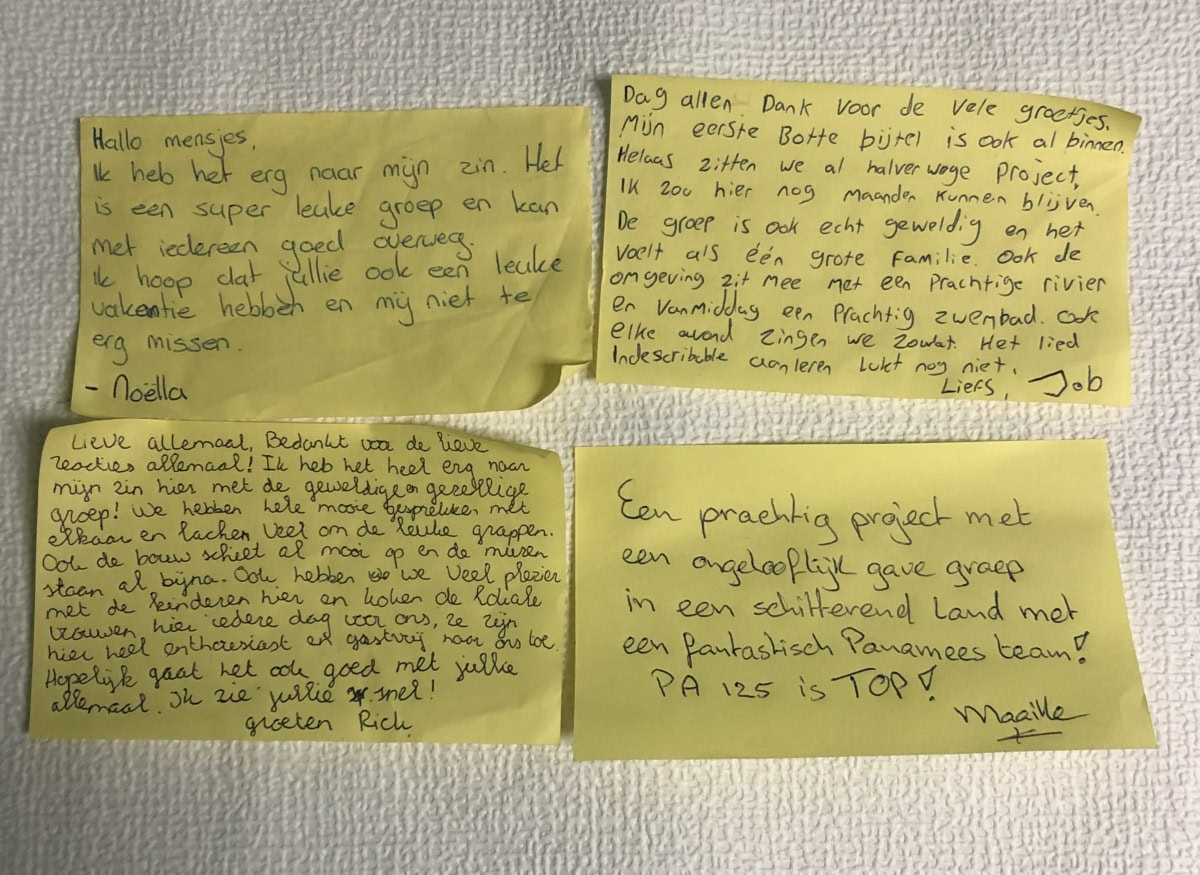 Hallo mensjes,
Ik heb het erg naar mijn zin. Het
is een super leuke groep en kan
met iedereen goed overweg.
Ik hoop dat jullie ook een leuke
vakentie hebben en mij niet te
erg missen.
- Noëlla
Dag allen. Dank voor de vele groetjes.
Mijn eerste Botte bijtel is ook al binnen.
Helaas zitten we al halverwege Project,
Ik zou hier nog maanden kunnen blijven.
De groep is ook echt geweldig en het
voelt als één grote familie. Ook de
omgeving zit mee met een Prachtige rivier
en vanmiddag een Prachtig zwembad. Ook
elke avond zingen we zowat. Het lied
Indescribable aanleren lukt nog niet.
Liefs, Job
Lieve allemaal, Bedankt voor de lieve
reacties allemaal! Ik heb het heel erg naar
mijn zin hier met de geweldige en gezellige
groep! We hebben hele mooie gesprekken met
elkaar en lachen veel om de leuke grappen.
Ook de bouw schiet al mooi op en de muren
staan al bijna. Ook hebben we veel plezier
met de kinderen hier en koken de lokale
vrouwen hier iedere dag voor ons, ze zijn
hier heel enthousiast en gastvrij naar ons toe.
Hopelijk gaat het ook goed met jullie
allemaal. Ik zie jullie snel!
groeten Rick
Een prachtig project met
een ongelooflijk gave groep
in een schitterend land met
een fantastisch Panamees team!
PA 125 is TOP!
Maaike